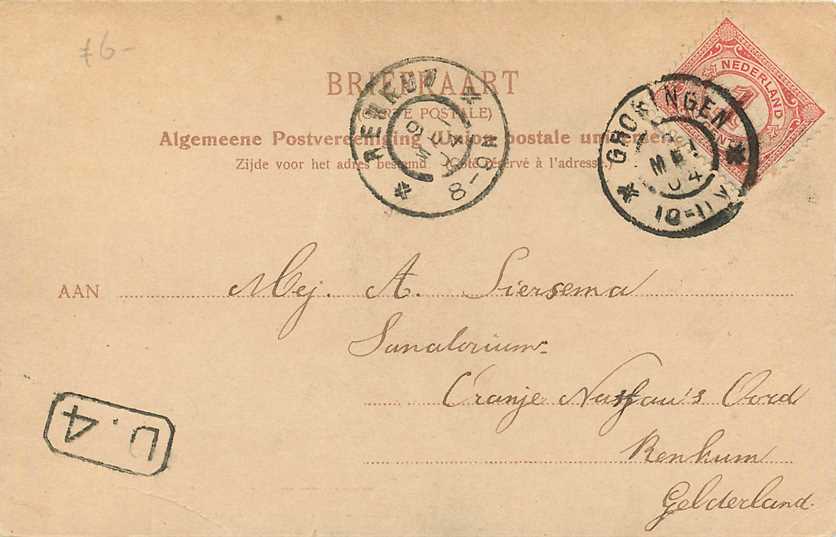 76-
BRIEFKAART
(CARTE POSTALE)
Algemeene Postvereeniging Union postale universelle
Zijde voor het adres bestemd. (Côté réservé à l'adresse.)
NEDERLAND
1
CENT
GRONINGEN
MEI
04
10-11V
RENKUM
04
6-8N
AAN
Mej. A. Siersema
Sanatorium
Oranje Nassau's Oord
Renkum
Gelderland.
D.4